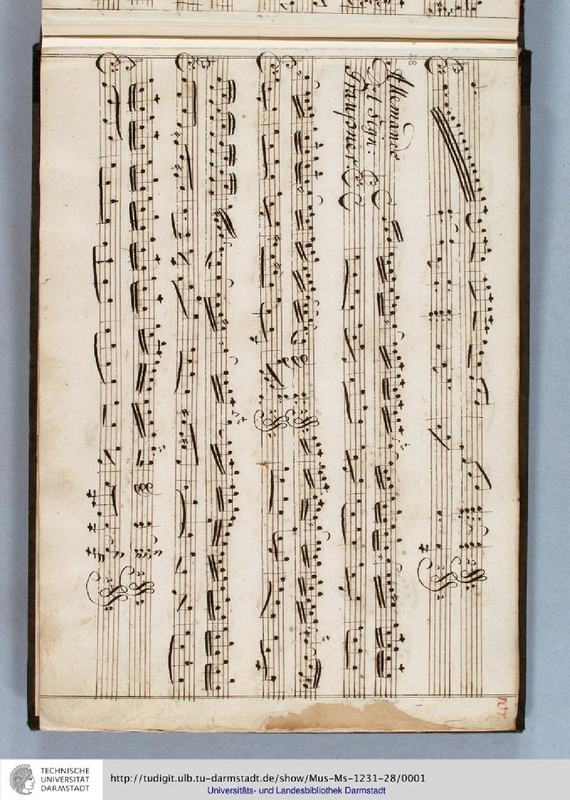 28
Allemande
del Sign:
Graupner
TECHNISCHE
UNIVERSITÄT
DARMSTADT
http://tudigit.ulb.tu-darmstadt.de/show/Mus-Ms-1231-28/0001
Universitäts- und Landesbibliothek Darmstadt